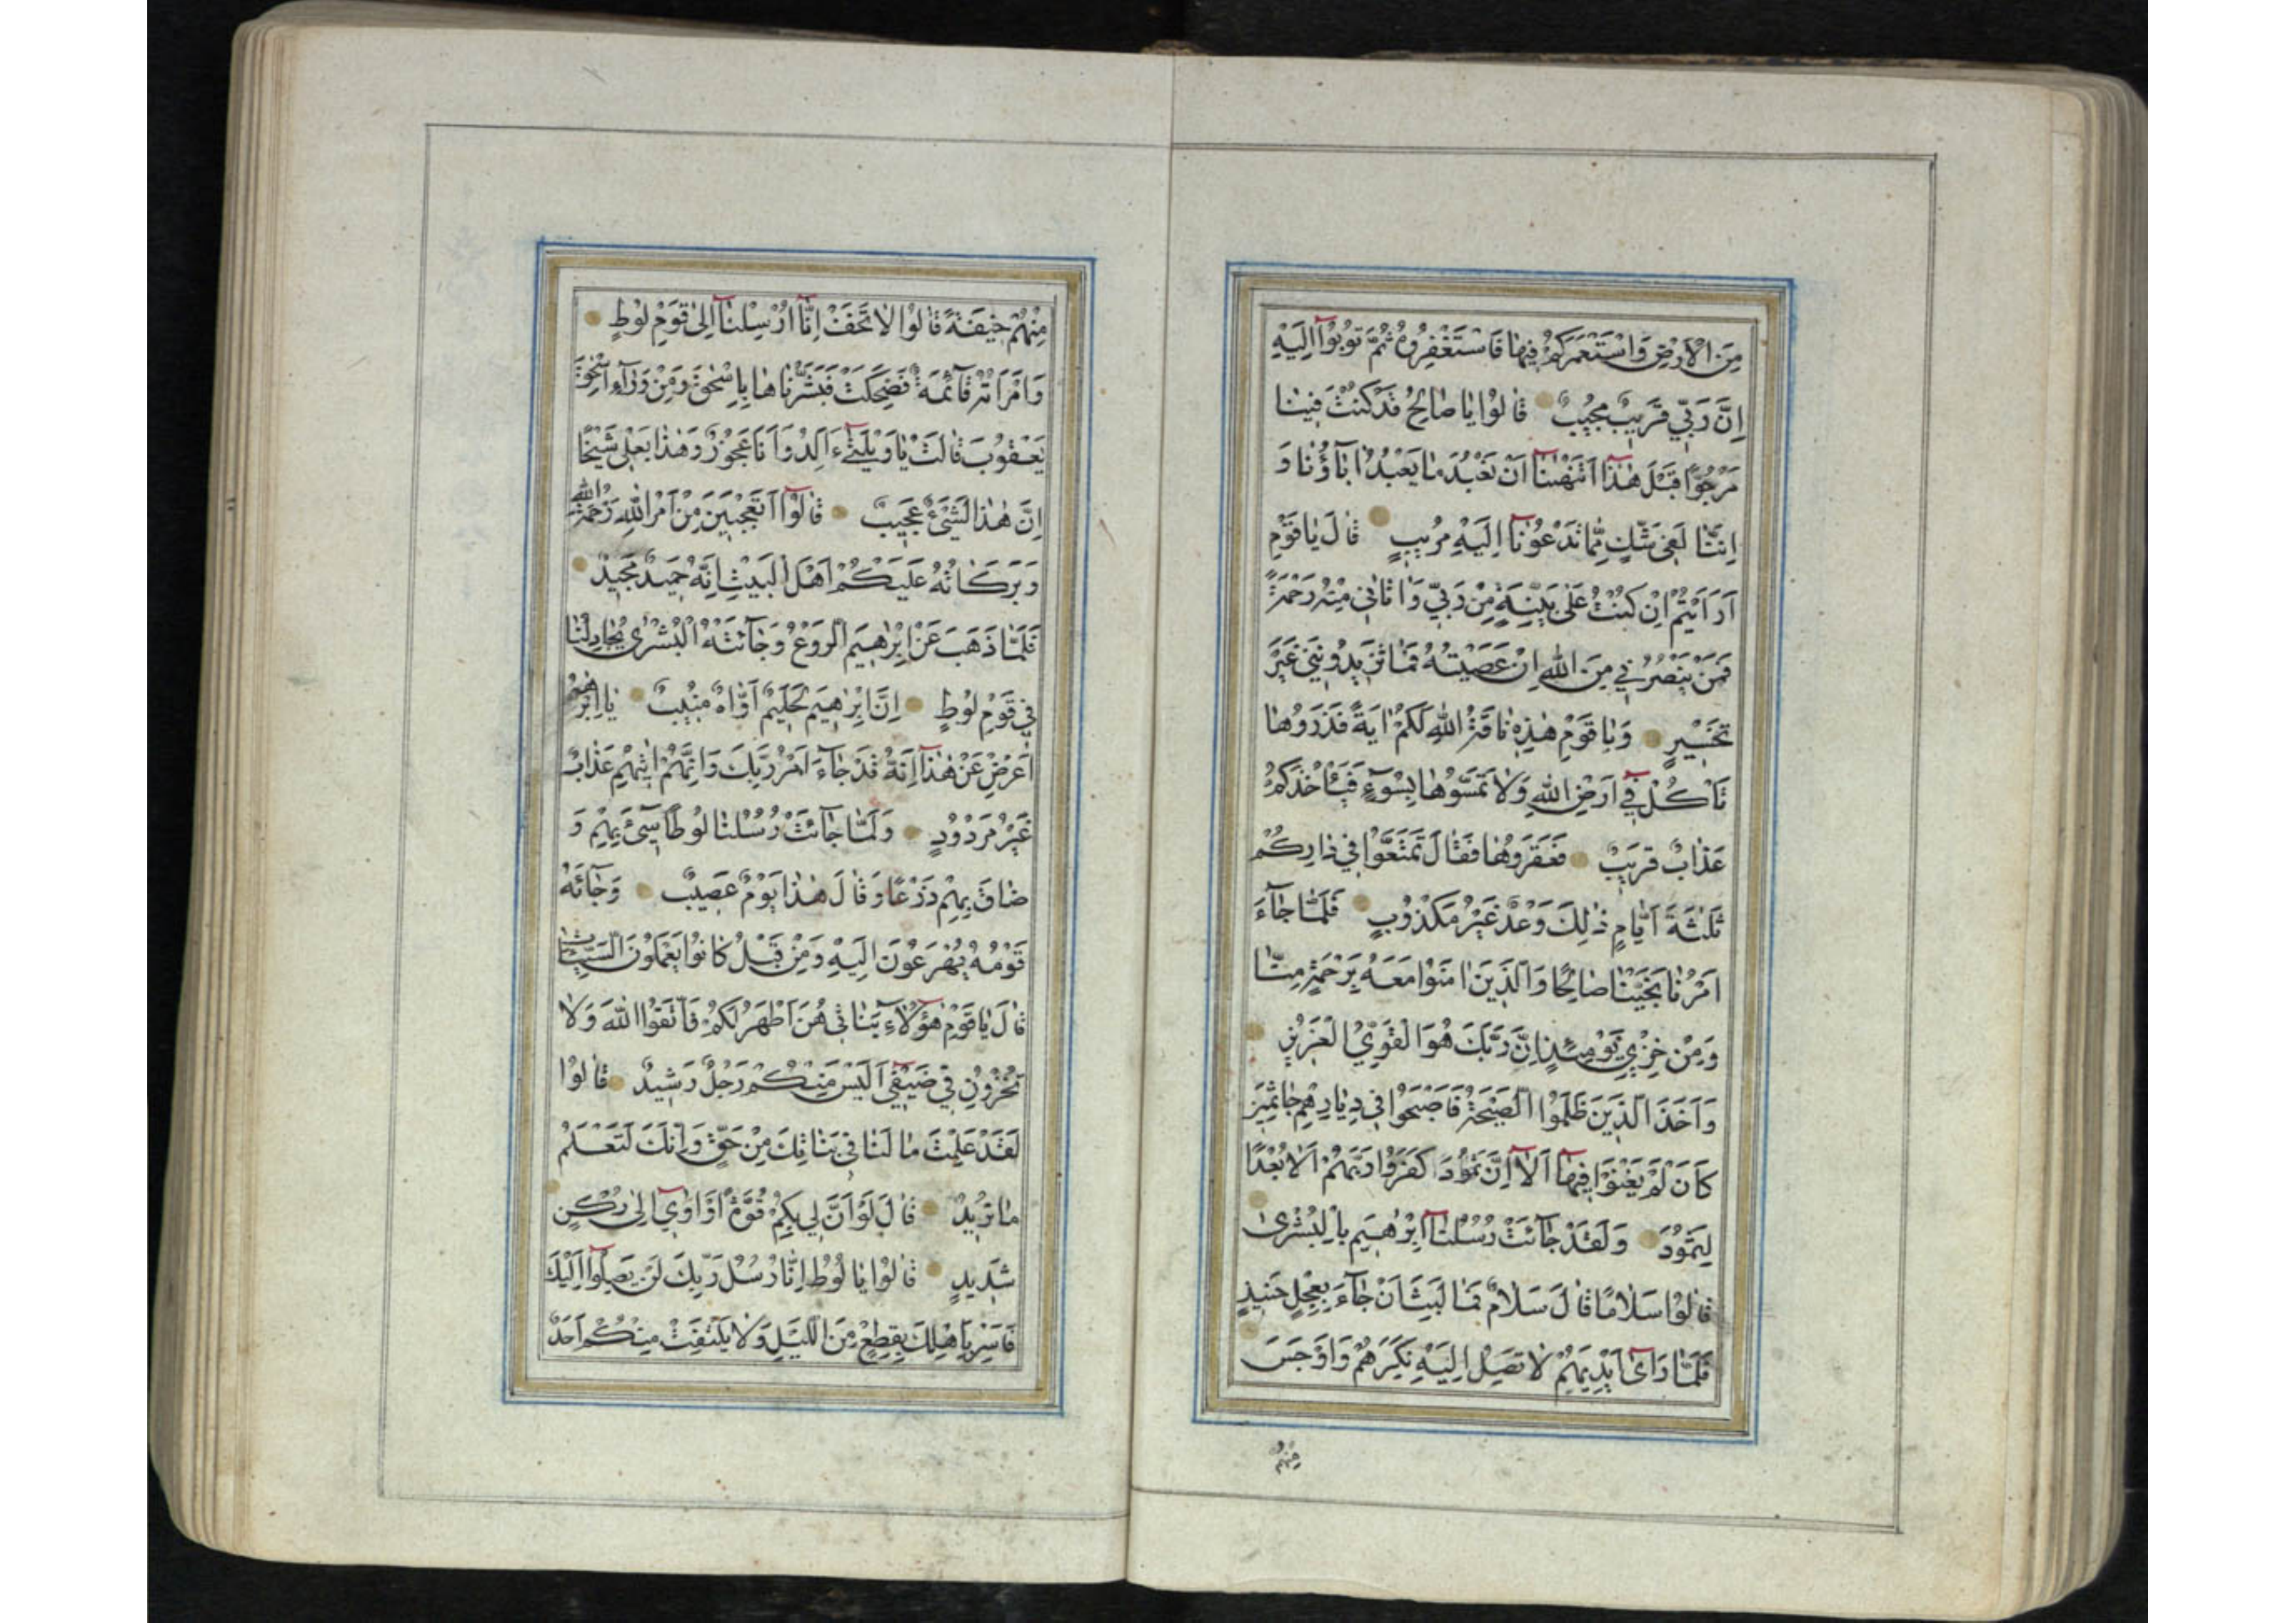 مِنَ الْاَرْضِ وَاسْتَعْمَرَكُمْ فِيهٰا فَاسْتَغْفِرُوهُ ثُمَّ تُوبُوٓا اِلَيْهِ
اِنَّ رَبِّي قَرِيبٌ مُجِيبٌ قٰالُوا يٰا صٰالِحُ قَدْ كُنْتَ فِينٰا
مَرْجُوًّا قَبْلَ هٰذٰٓا اَتَنْهٰينٰٓا اَنْ نَعْبُدَ مٰا يَعْبُدُ اٰبٰٓاؤُنٰا وَ
اِنَّنٰا لَفِي شَكٍّ مِمّٰا تَدْعُونٰٓا اِلَيْهِ مُرِيبٍ قٰالَ يٰا قَوْمِ
اَرَاَيْتُمْ اِنْ كُنْتُ عَلٰى بَيِّنَةٍ مِنْ رَبِّي وَاٰتٰانِي مِنْهُ رَحْمَةً
فَمَنْ يَنْصُرُنِي مِنَ اللّٰهِ اِنْ عَصَيْتُهُ فَمٰا تَزِيدُونَنِي غَيْرَ
تَخْسِيرٍ وَيٰا قَوْمِ هٰذِهِ نٰاقَةُ اللّٰهِ لَكُمْ اٰيَةً فَذَرُوهٰا
تَأْكُلْ فِيٓ اَرْضِ اللّٰهِ وَلٰا تَمَسُّوهٰا بِسُوٓءٍ فَيَأْخُذَكُمْ
عَذٰابٌ قَرِيبٌ فَعَقَرُوهٰا فَقٰالَ تَمَتَّعُوا فِي دٰارِكُمْ
ثَلٰثَةَ اَيّٰامٍ ذٰلِكَ وَعْدٌ غَيْرُ مَكْذُوبٍ فَلَمّٰا جٰٓاءَ
اَمْرُنٰا نَجَّيْنٰا صٰالِحًا وَالَّذِينَ اٰمَنُوا مَعَهُ بِرَحْمَةٍ مِنّٰا
وَمِنْ خِزْيِ يَوْمِئِذٍ اِنَّ رَبَّكَ هُوَ الْقَوِيُّ الْعَزِيزُ
وَاَخَذَ الَّذِينَ ظَلَمُوا الصَّيْحَةُ فَاَصْبَحُوا فِي دِيٰارِهِمْ جٰاثِمِينَ
كَاَنْ لَمْ يَغْنَوْا فِيهٰٓا اَلٰٓا اِنَّ ثَمُودَ كَفَرُوا رَبَّهُمْ اَلٰا بُعْدًا
لِثَمُودَ وَلَقَدْ جٰٓائَتْ رُسُلُنٰٓا اِبْرٰهِيمَ بِالْبُشْرٰى
قٰالُوا سَلٰامًا قٰالَ سَلٰامٌ فَمٰا لَبِثَ اَنْ جٰٓاءَ بِعِجْلٍ حَنِيذٍ
فَلَمّٰا رَاٰىٓ اَيْدِيَهُمْ لٰا تَصِلُ اِلَيْهِ نَكِرَهُمْ وَاَوْجَسَ
مِنْهُمْ
مِنْهُمْ خِيفَةً قٰالُوا لٰا تَخَفْ اِنّٰٓا اُرْسِلْنٰٓا اِلٰى قَوْمِ لُوطٍ
وَامْرَاَتُهُ قٰٓائِمَةٌ فَضَحِكَتْ فَبَشَّرْنٰاهٰا بِاِسْحٰقَ وَمِنْ وَرٰٓاءِ اِسْحٰقَ
يَعْقُوبَ قٰالَتْ يٰا وَيْلَتٰىٓ ءَاَلِدُ وَاَنَا عَجُوزٌ وَهٰذٰا بَعْلِي شَيْخًا
اِنَّ هٰذٰا لَشَيْئٌ عَجِيبٌ قٰالُوٓا اَتَعْجَبِينَ مِنْ اَمْرِ اللّٰهِ رَحْمَةُ اللّٰهِ
وَبَرَكٰاتُهُ عَلَيْكُمْ اَهْلَ الْبَيْتِ اِنَّهُ حَمِيدٌ مَجِيدٌ
فَلَمّٰا ذَهَبَ عَنْ اِبْرٰهِيمَ الرَّوْعُ وَجٰٓائَتْهُ الْبُشْرٰى يُجٰادِلُنٰا
فِي قَوْمِ لُوطٍ اِنَّ اِبْرٰهِيمَ لَحَلِيمٌ اَوّٰاهٌ مُنِيبٌ يٰٓا اِبْرٰهِيمُ
اَعْرِضْ عَنْ هٰذٰٓا اِنَّهُ قَدْ جٰٓاءَ اَمْرُ رَبِّكَ وَاِنَّهُمْ اٰتِيهِمْ عَذٰابٌ
غَيْرُ مَرْدُودٍ وَلَمّٰا جٰٓائَتْ رُسُلُنٰا لُوطًا سِيٓئَ بِهِمْ وَ
ضٰاقَ بِهِمْ ذَرْعًا وَقٰالَ هٰذٰا يَوْمٌ عَصِيبٌ وَجٰٓائَهُ
قَوْمُهُ يُهْرَعُونَ اِلَيْهِ وَمِنْ قَبْلُ كٰانُوا يَعْمَلُونَ السَّيِّئٰاتِ
قٰالَ يٰا قَوْمِ هٰٓؤُلٰٓاءِ بَنٰاتِي هُنَّ اَطْهَرُ لَكُمْ فَاتَّقُوا اللّٰهَ وَلٰا
تُخْزُونِ فِي ضَيْفِيٓ اَلَيْسَ مِنْكُمْ رَجُلٌ رَشِيدٌ قٰالُوا
لَقَدْ عَلِمْتَ مٰا لَنٰا فِي بَنٰاتِكَ مِنْ حَقٍّ وَاِنَّكَ لَتَعْلَمُ
مٰا نُرِيدُ قٰالَ لَوْ اَنَّ لِي بِكُمْ قُوَّةً اَوْ اٰوِيٓ اِلٰى رُكْنٍ
شَدِيدٍ قٰالُوا يٰا لُوطُ اِنّٰا رُسُلُ رَبِّكَ لَنْ يَصِلُوٓا اِلَيْكَ
فَاَسْرِ بِاَهْلِكَ بِقِطْعٍ مِنَ اللَّيْلِ وَلٰا يَلْتَفِتْ مِنْكُمْ اَحَدٌ